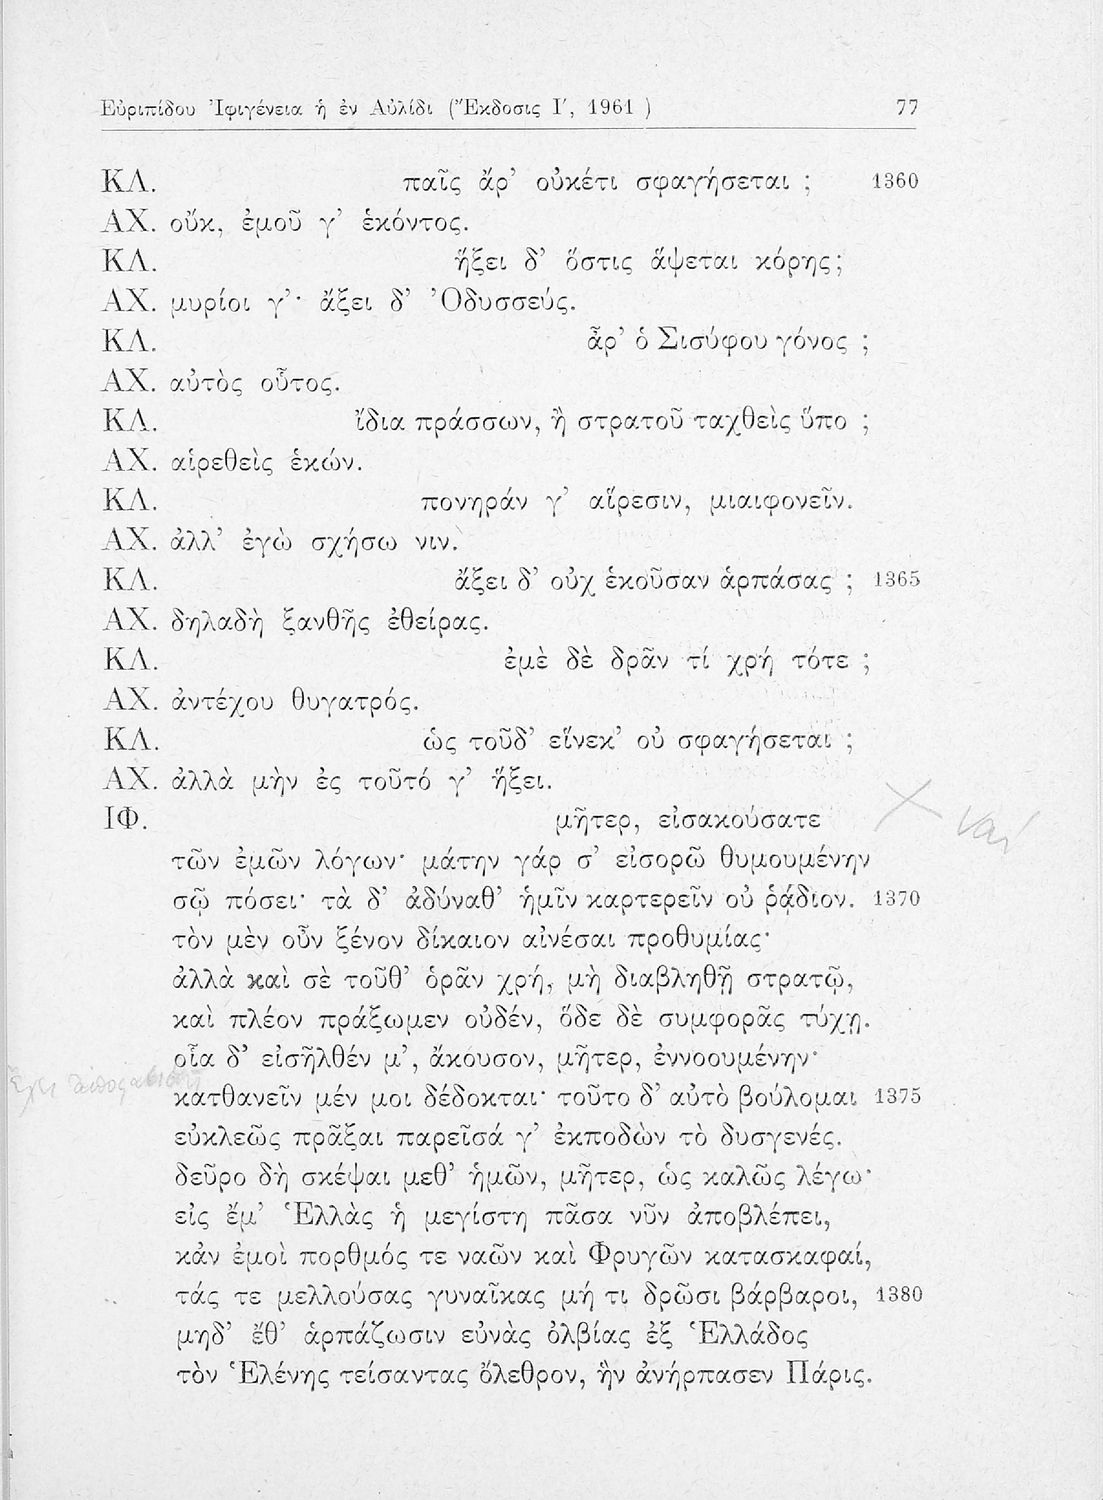 Εὐριπίδου Ἰφιγένεια ἡ ἐν Αὐλίδι (Ἔκδοσις Ι′, 1961 ) 77
ΚΛ. παῖς ἄρ’ οὐκέτι σφαγήσεται ; 1360
ΑΧ. οὔκ, ἐμοῦ γ’ ἑκόντος.
ΚΛ. ἥξει δ’ ὅστις ἅψεται κόρης;
ΑΧ. μυρίοι γ’· ἄξει δ’ Ὀδυσσεύς.
ΚΛ. ἆρ’ ὁ Σισύφου γόνος ;
ΑΧ. αὐτὸς οὗτος.
ΚΛ. ἴδια πράσσων, ἢ στρατοῦ ταχθεὶς ὕπο ;
ΑΧ. αἱρεθεὶς ἑκών.
ΚΛ. πονηράν γ’ αἵρεσιν, μιαιφονεῖν.
ΑΧ. ἀλλ’ ἐγὼ σχήσω νιν.
ΚΛ. ἄξει δ’ οὐχ ἑκοῦσαν ἁρπάσας ; 1365
ΑΧ. δηλαδὴ ξανθῆς ἐθείρας.
ΚΛ. ἐμὲ δὲ δρᾶν τί χρή τότε ;
ΑΧ. ἀντέχου θυγατρός.
ΚΛ. ὡς τοῦδ’ εἵνεκ’ οὐ σφαγήσεται ;
ΑΧ. ἀλλὰ μὴν ἐς τοῦτό γ’ ἥξει.
ΙΦ. μῆτερ, εἰσακούσατε ναί
τῶν ἐμῶν λόγων· μάτην γάρ σ’ εἰσορῶ θυμουμένην
σῷ πόσει· τὰ δ’ ἀδύναθ’ ἡμῖν καρτερεῖν οὐ ῥᾴδιον. 1370
τὸν μὲν οὖν ξένον δίκαιον αἰνέσαι προθυμίας·
ἀλλὰ καὶ σὲ τοῦθ’ ὁρᾶν χρή, μὴ διαβληθῇ στρατῷ,
καὶ πλέον πράξωμεν οὐδέν, ὅδε δὲ συμφορᾶς τύχῃ.
οἷα δ’ εἰσῆλθέν μ’, ἄκουσον, μῆτερ, ἐννοουμένην·
κατθανεῖν μέν μοι δέδοκται· τοῦτο δ’ αὐτὸ βούλομαι 1375
εὐκλεῶς πρᾶξαι παρεῖσά γ’ ἐκποδὼν τὸ δυσγενές.
δεῦρο δὴ σκέψαι μεθ’ ἡμῶν, μῆτερ, ὡς καλῶς λέγω·
εἰς ἔμ’ Ἑλλὰς ἡ μεγίστη πᾶσα νῦν ἀποβλέπει,
κἀν ἐμοὶ πορθμός τε ναῶν καὶ Φρυγῶν κατασκαφαί,
τάς τε μελλούσας γυναῖκας μή τι δρῶσι βάρβαροι, 1380
μηδ’ ἔθ’ ἁρπάζωσιν εὐνὰς ὀλβίας ἐξ Ἑλλάδος
τὸν Ἑλένης τείσαντας ὄλεθρον, ἣν ἀνήρπασεν Πάρις.